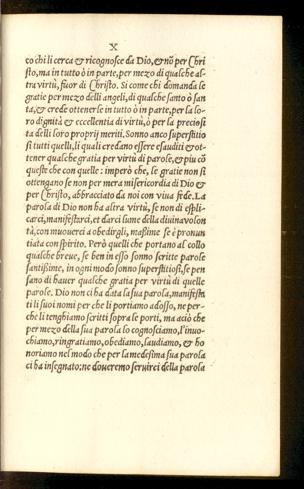 X
co chi li cerca & ricognosce da Dio, & nõ per Chri
sto, ma in tutto ò in parte, per mezo di qualche al-
tra virtù, fuor di Christo. Si come chi domanda le
gratie per mezo delli angeli, di qualche santo ò san
ta, & crede ottenerle in tutto ò in parte, per la lo-
ro dignità & eccellentia di virtù, ò per la preciosi
ta delli loro proprij meriti. Sonno anco superstitio
si tutti quelli, li quali credano essere esauditi & ot-
tener qualche gratia per virtù di parole, & piu cõ
queste che con quelle: imperò che, le gratie non si
ottengano se non per mera misericordia di Dio &
per Christo, abbracciato da noi con viua fede. La
parola di Dio non ha altra virtù, se non di espli-
carci, manifestarci, et darci lume della diuina volon
tà, con muouerci a obedirgli, maßime se è pronun
tiata con spirito. Però quelli che portano al collo
qualche breue, se ben in esso sonno scritte parole
santißime, in ogni modo sonno superstitiosi, se pen
sano di hauer qualche gratia per virtù di quelle
parole. Dio non ci ha data la sua parola, manifesta
ti li suoi nomi per che li portiamo adosso, ne per-
che li tenghiamo scritti sopra le porti, ma aciò che
per mezo della sua parola lo cognosciamo, l'inuo-
chiamo, ringratiamo, obediamo, laudiamo, & ho
noriamo nel modo che per la medesima sua parola
ci ha insegnato: ne doueremo seruirci della parola